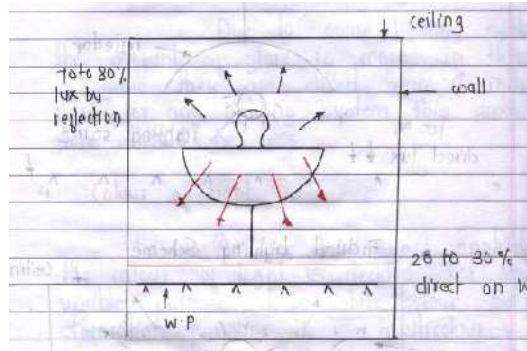 ceiling
70 to 80%
lux by
reflection
wall
20 to 30%
direct on W
W.P